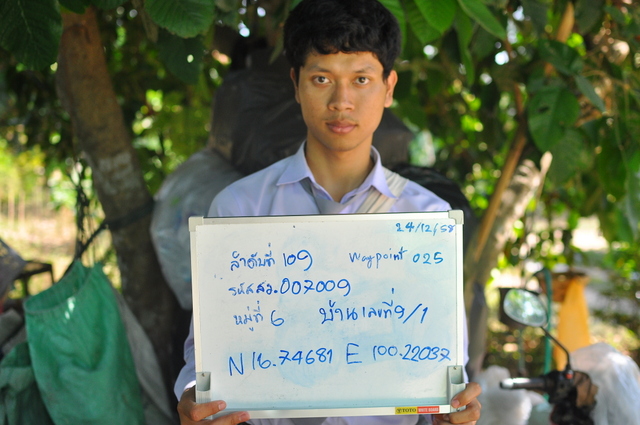 24/12/58
ลำดับที่ 109 waypoint 025
รหัสสว.007009
หมู่ที่ 6 บ้านเลขที่ 9/1
N 16.74681 E 100.22037
TOTO